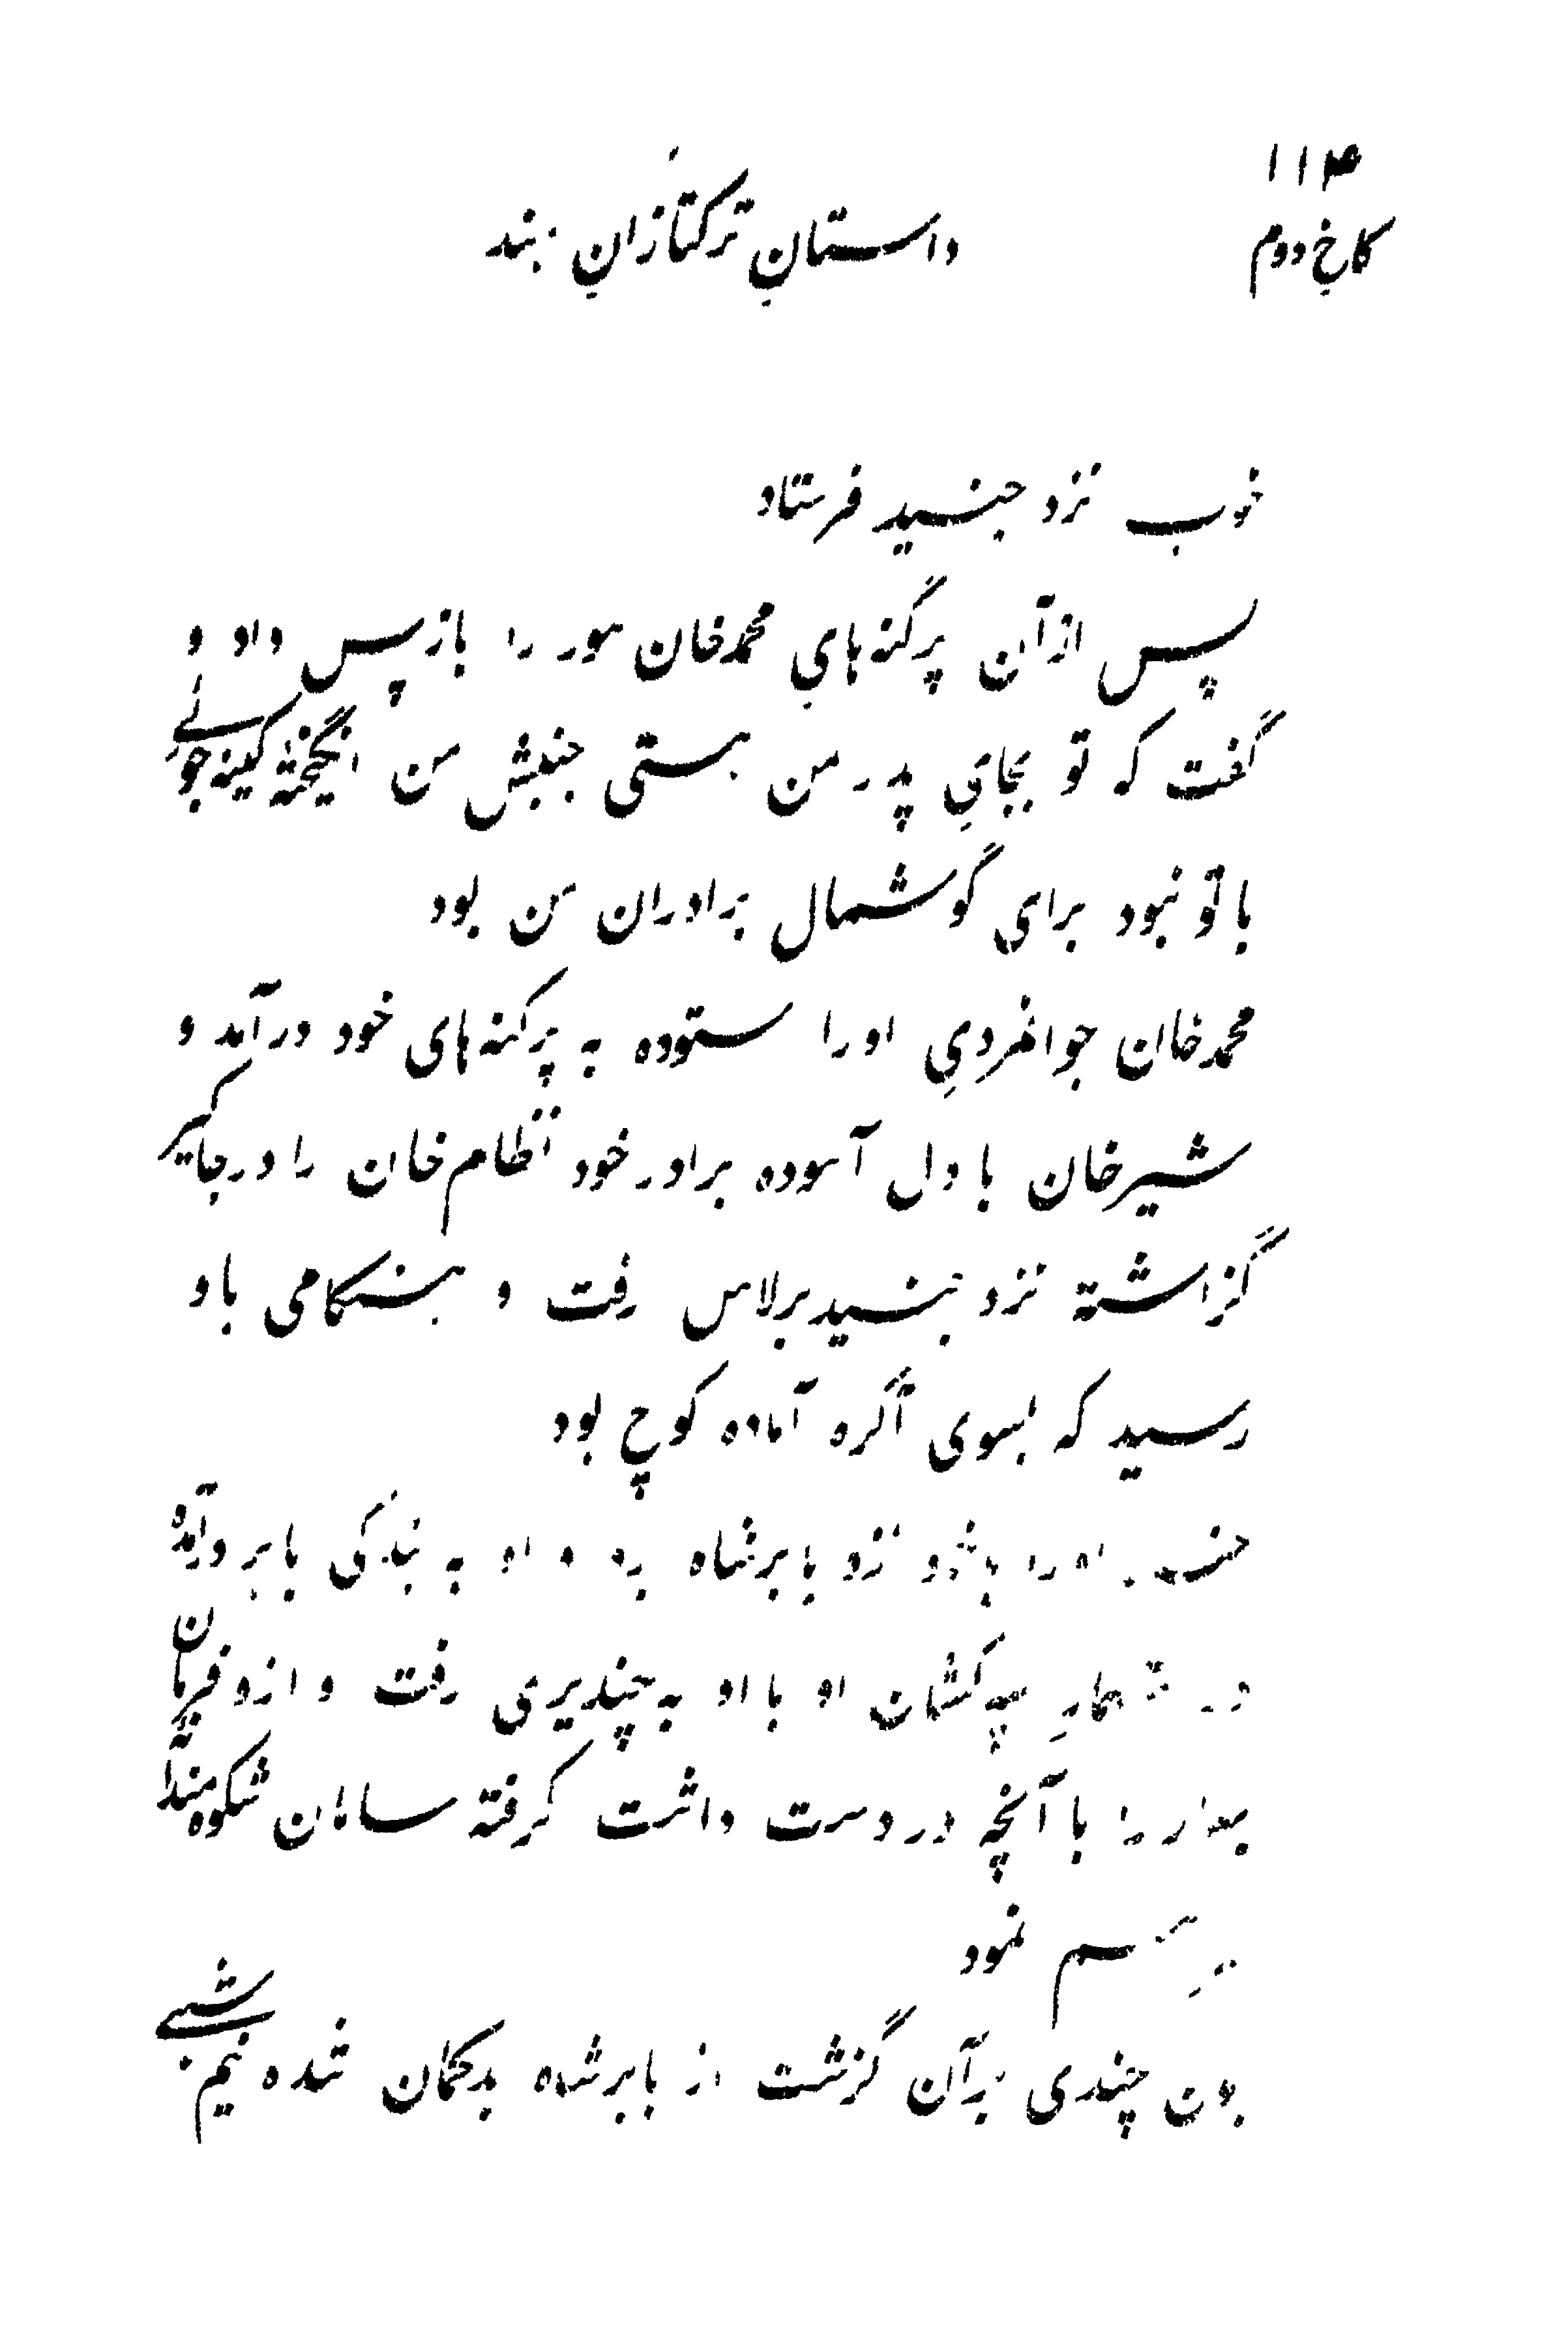 ۱۱۴
کاخ دوم
داستانِ ترکتازانِ هند
خوب نزد جنید فرستاد
پس از آن پرگنه‌هایِ محمدخان سور را بازپس داد و
گفت که تو بجایِ پدر من هستی جنبش من انگیختهٔ کینه‌جوئی
با تو نبود برای گوشمال برادران من بود
محمدخان جوانمردیِ او را ستوده به پرگنه‌های خود درآمد و
شیرخان با دل آسوده برادر خود نظام‌خان را در جاگیر
گزاشته نزد جنید برلاس رفت و هنگامی باو
رسید که بسوی آگره آماده کوچ بود
جنید او را با خود نزد بابرشاه برد و او به بندگی بابر درآمده
در شمارِ سپه‌کشان او با او به چندیری رفت و ازو فرمان
بهار را با آنچه در دست داشت گرفته سامان شکوهمندانه
نمود
چون چندی برآن گزشت از بابرشاه بدگمان شده نیم‌شبی